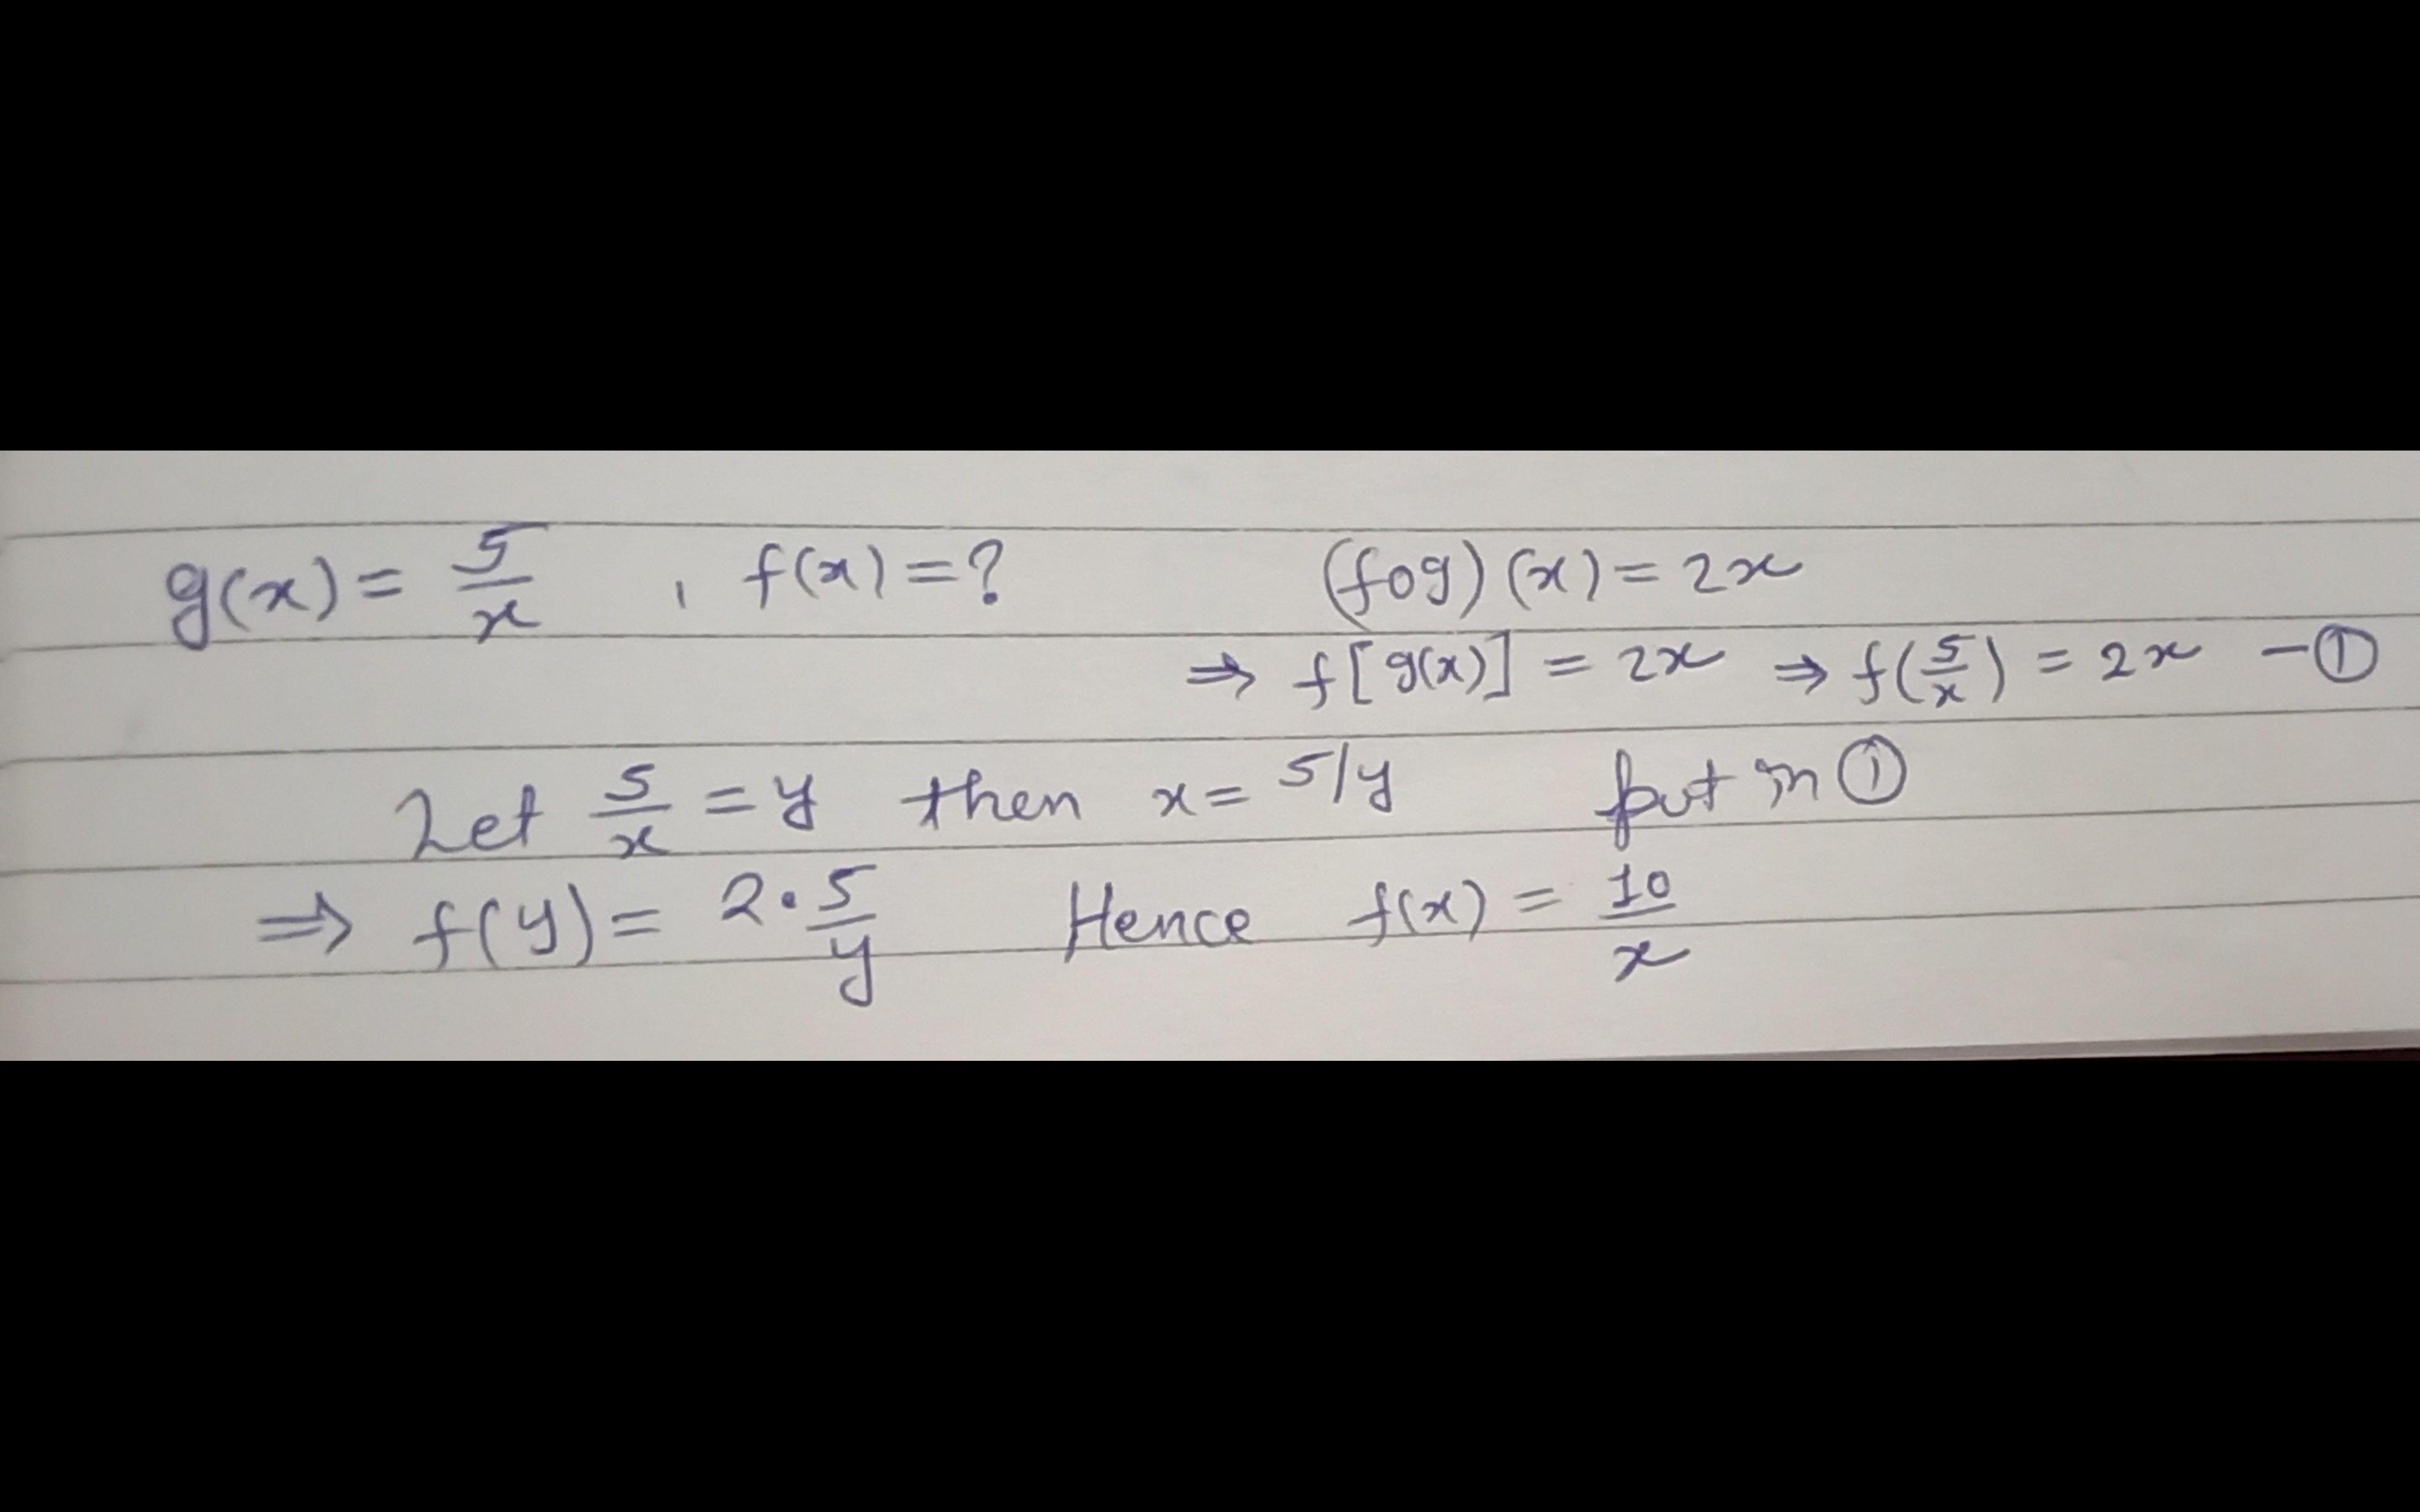 g(x) = 5/x , f(x) = ? (fog)(x) = 2x
⇒ f[g(x)] = 2x ⇒ f(5/x) = 2x —①
Let 5/x = y then x = 5/y put in ①
⇒ f(y) = 2·5/y Hence f(x) = 10/x